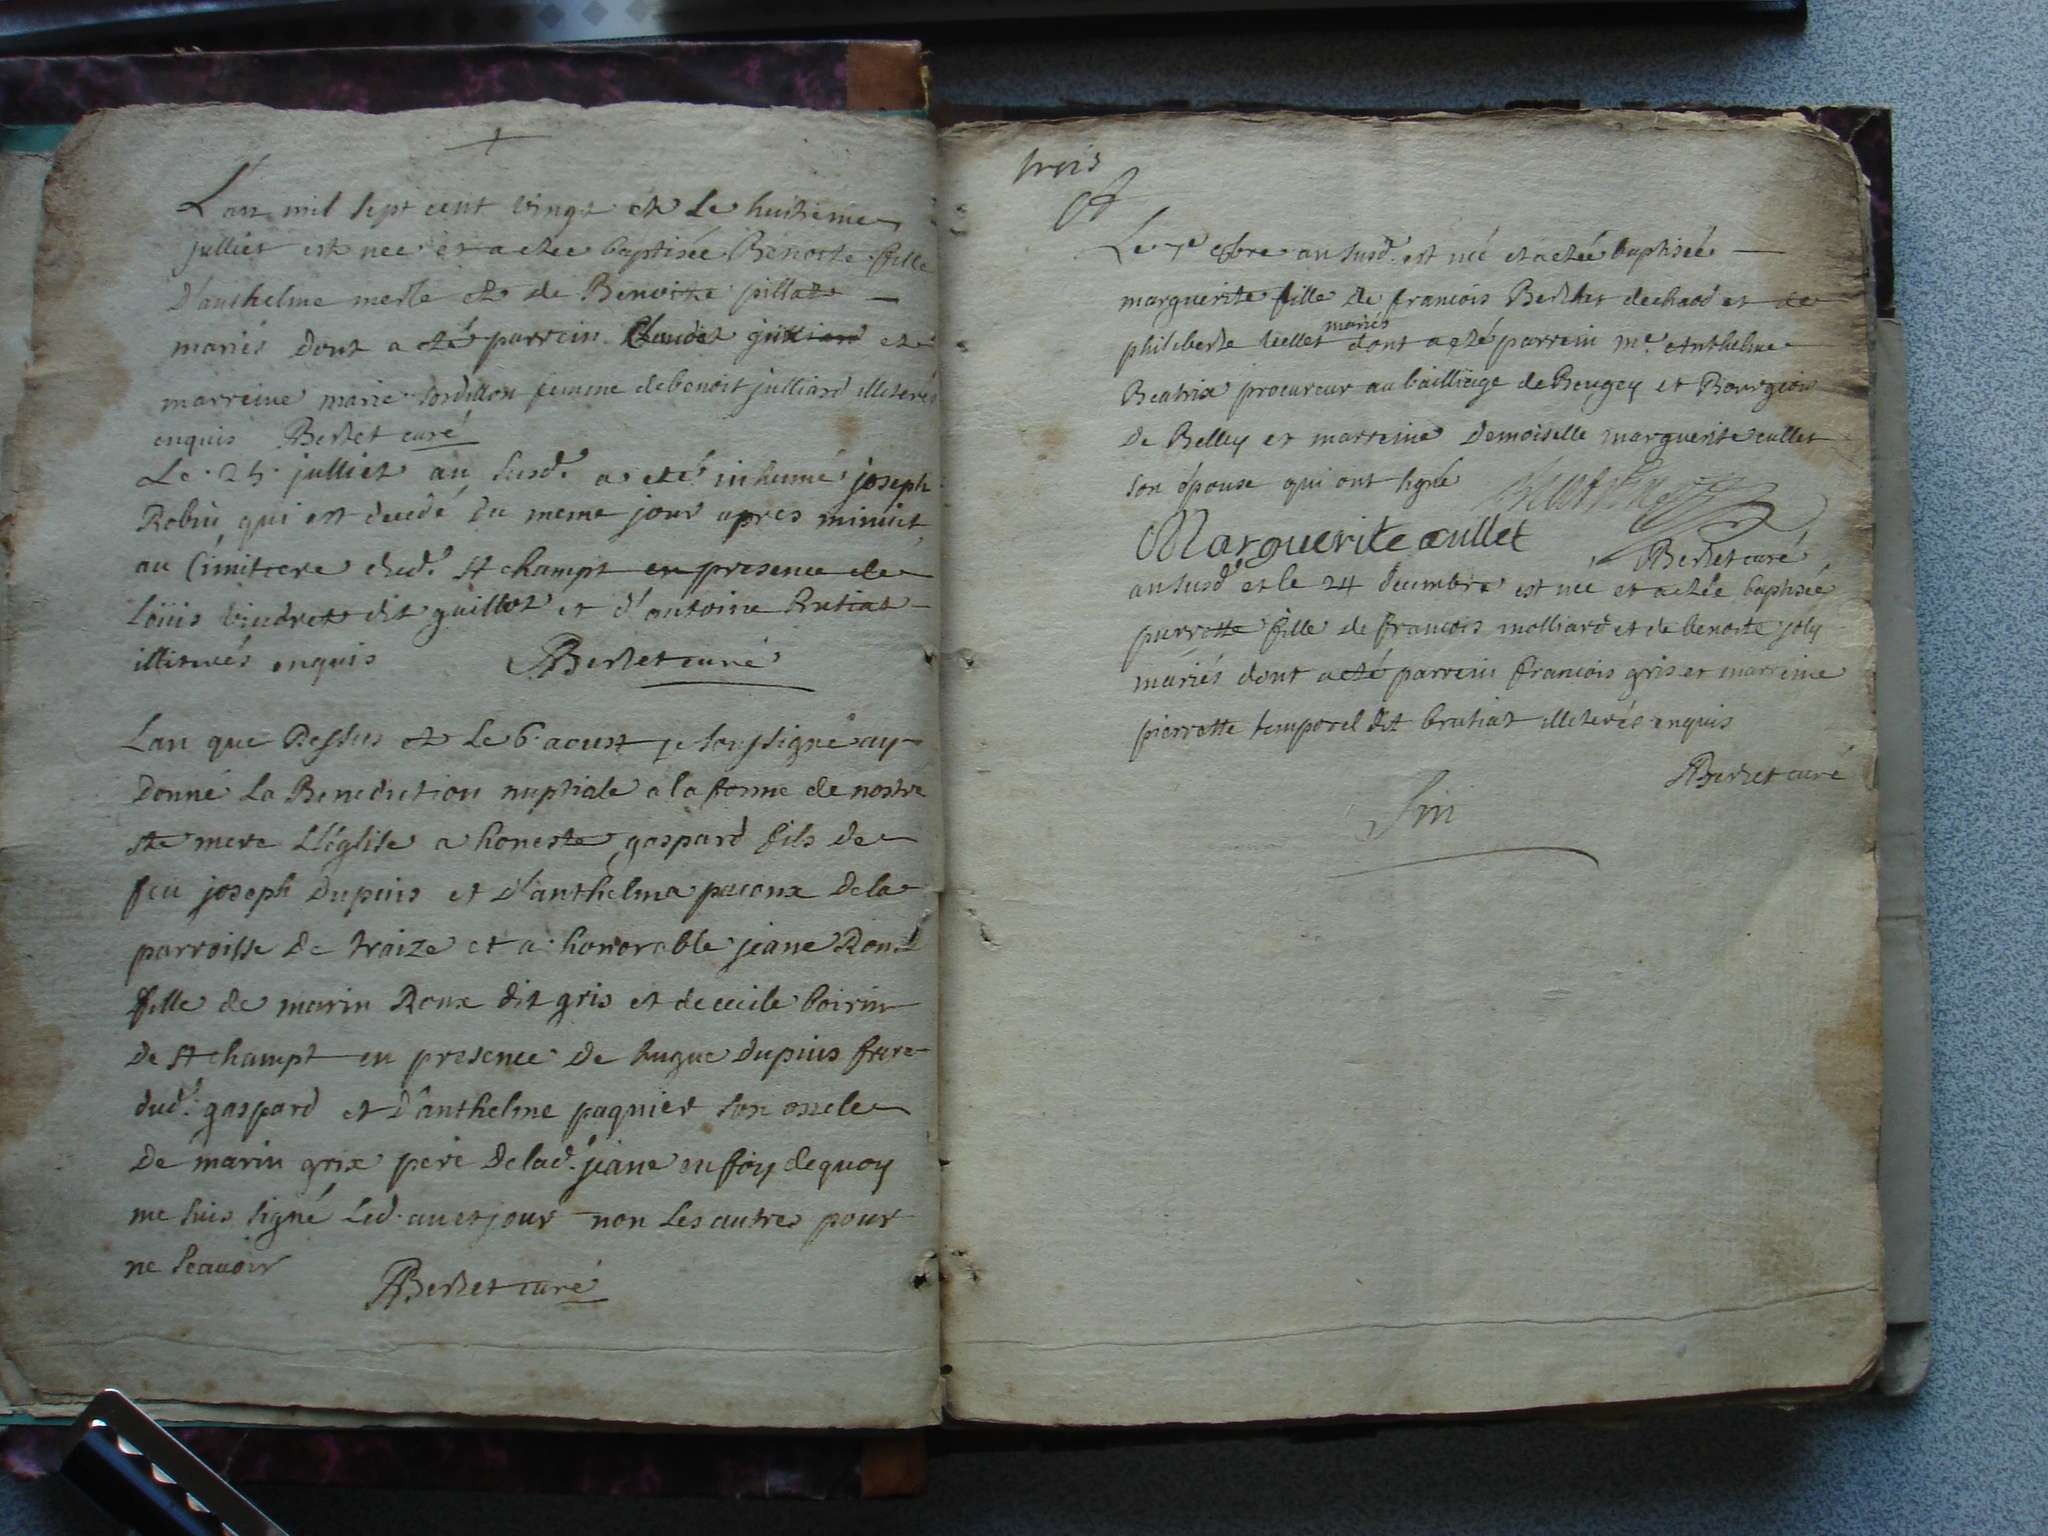 L'an mil sept cent vingt et le huitieme
julliet est nee et a etee baptisée Benoite fille
D'anthelme merle et de Benoitte pillat
mariés dont a eté parrein Claude julliard et
marreine marie fem̃e debenoit julliard illiterés
enquis Berlet curé
Le 25 julliet an susd. a eté inhumé joseph
Robin qui est decedé du meme jour apres minuit
au Cimitiere dud. st champt en presence de
Loüis vindret dit guillot et d'antoine Brutiat
illiterés enquis Berlet curé
Lan que Dessus et le 6 aoust je soussigné ay
Donné La Benediction nuptiale a la forme de nostre
ste mere L'églese a honeste gaspard fils de
feu joseph Dupuis et d'anthelma pacoux dela
parroisse de traize et a honorable jeane Roux
fille de marin Roux dit gris et de cecile boirin
De st champt en presence de hugue dupuis frere
dud. gaspard et d'anthelme paquier son oncle
De marin grix pere delad. jeane en foy dequoy
me suis signé Led. an et jour non les autres pour
ne scavoir
Berlet curé
trois
Le 7e 8bre an susd. est née et a etéé baptiseé
marguerite fille de francois Berthet et de
philiberte cullet mariés dont a eté parrein me. Anthelme
Beatrix procureur au bailliage de Beugey et
De Belley et marreine Demoiselle marguerite cullet
son épouse qui ont signé
Marguerite cullet
Berlet curé
an susd. et le 24 decembre est nee et a etée baptisée
perrette fille de francois molliard et de benoite joly
mariés dont a eté parrein francois gris et marreine
pierrette temporel dit brutiat illiterés enquis
Berlet curé
fin